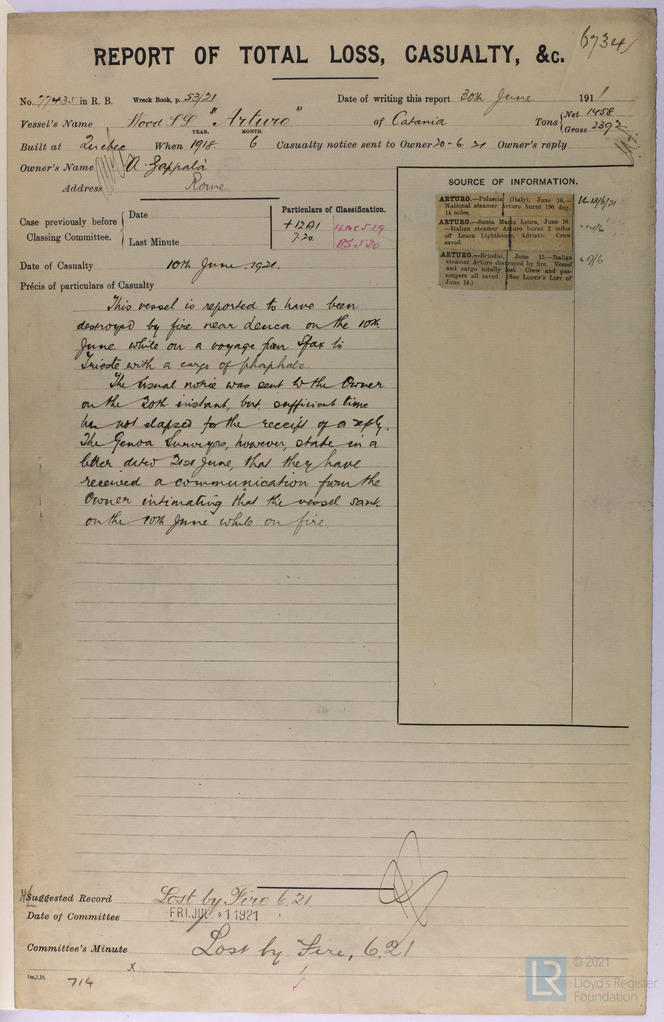 6734
REPORT OF TOTAL LOSS, CASUALTY, &c.
No. 77435 in R. B. Wreck Book, p. 53/21 Date of writing this report 30th June 191
Vessel's Name Wood SS "Arturo" of Catania Tons { Net 1458 Gross 2392
YEAR. MONTH.
Built at Quebec When 1918 6 Casualty notice sent to Owner 20-6-21 Owner's reply
Owner's Name A. Zappalà
Address Rome
SOURCE OF INFORMATION.
ARTURO.—Palascia (Italy), June 10.—
National steamer Arturo burnt 190 deg.
14 miles.
ARTURO.—Santa Maria Leuca, June 10.
—Italian steamer Arturo burnt 2 miles
off Leuca Lighthouse, Adriatic. Crew
saved.
ARTURO.—Brindisi, June 15.—Italian
steamer Arturo destroyed by fire. Vessel
and cargo totally lost. Crew and pas-
sengers all saved. (See LLOYD'S LIST of
June 14.)
LL 13/6/21
17/6
Case previously before Classing Committee. { Date
Last Minute
Particulars of Classification.
+12A1
7.20
BS 5.20
Date of Casualty 10th June 1921.
Précis of particulars of Casualty
This vessel is reported to have been
destroyed by fire near Leuca on the 10th
June while on a voyage from Sfax to
Trieste with a cargo of phosphate.
The usual notice was sent to the Owner
on the 20th instant, but sufficient time
has not elapsed for the receipt of a reply.
The Genoa Surveyors, however, state in a
letter dated 21st June, that they have
received a communication from the
Owner intimating that the vessel sank
on the 10th June while on fire.
Suggested Record Lost by Fire 6.21.
Date of Committee FRI. JUL 1 1921
Committee's Minute Lost by Fire, 6.21
x
714
LR
© 2021
Lloyd's Register
Foundation